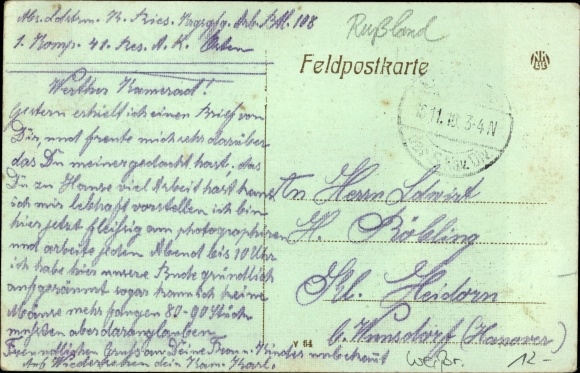 Abs. Ldstrm. R. Kries. Krgsgfg. Arb. Btl. 108
1. Komp. 41. Res. A. K. Osten
Rußland
Feldpostkarte
16.11.16. 3-4 N
Werther Kamerad!
Gestern erhielt ich einen Brief von
Dir, und freute mich sehr darüber
das Du meiner gedacht hast, das
Du zu Hause viel Arbeit hast kann
ich mir lebhaft vorstellen ich bin
hier jetzt fleißig am photographieren
und arbeite jeden Abend bis 10 Uhr
ich habe hier unsere Bude gründlich
aufgeräumt sogar kann ich keine
Mäuse mehr fangen 80-90 Stück
mußten aber daran glauben.
Freundlichen Gruss an Deine Frau u. Kinder unbekannt
Auf Wiedersehen dein Kam. Karl.
An Herrn Ldwirt
H. Röbbing
Kl. Heidorn
b. Wunsdorf (Hanover)
V 64
Weißr.
12-